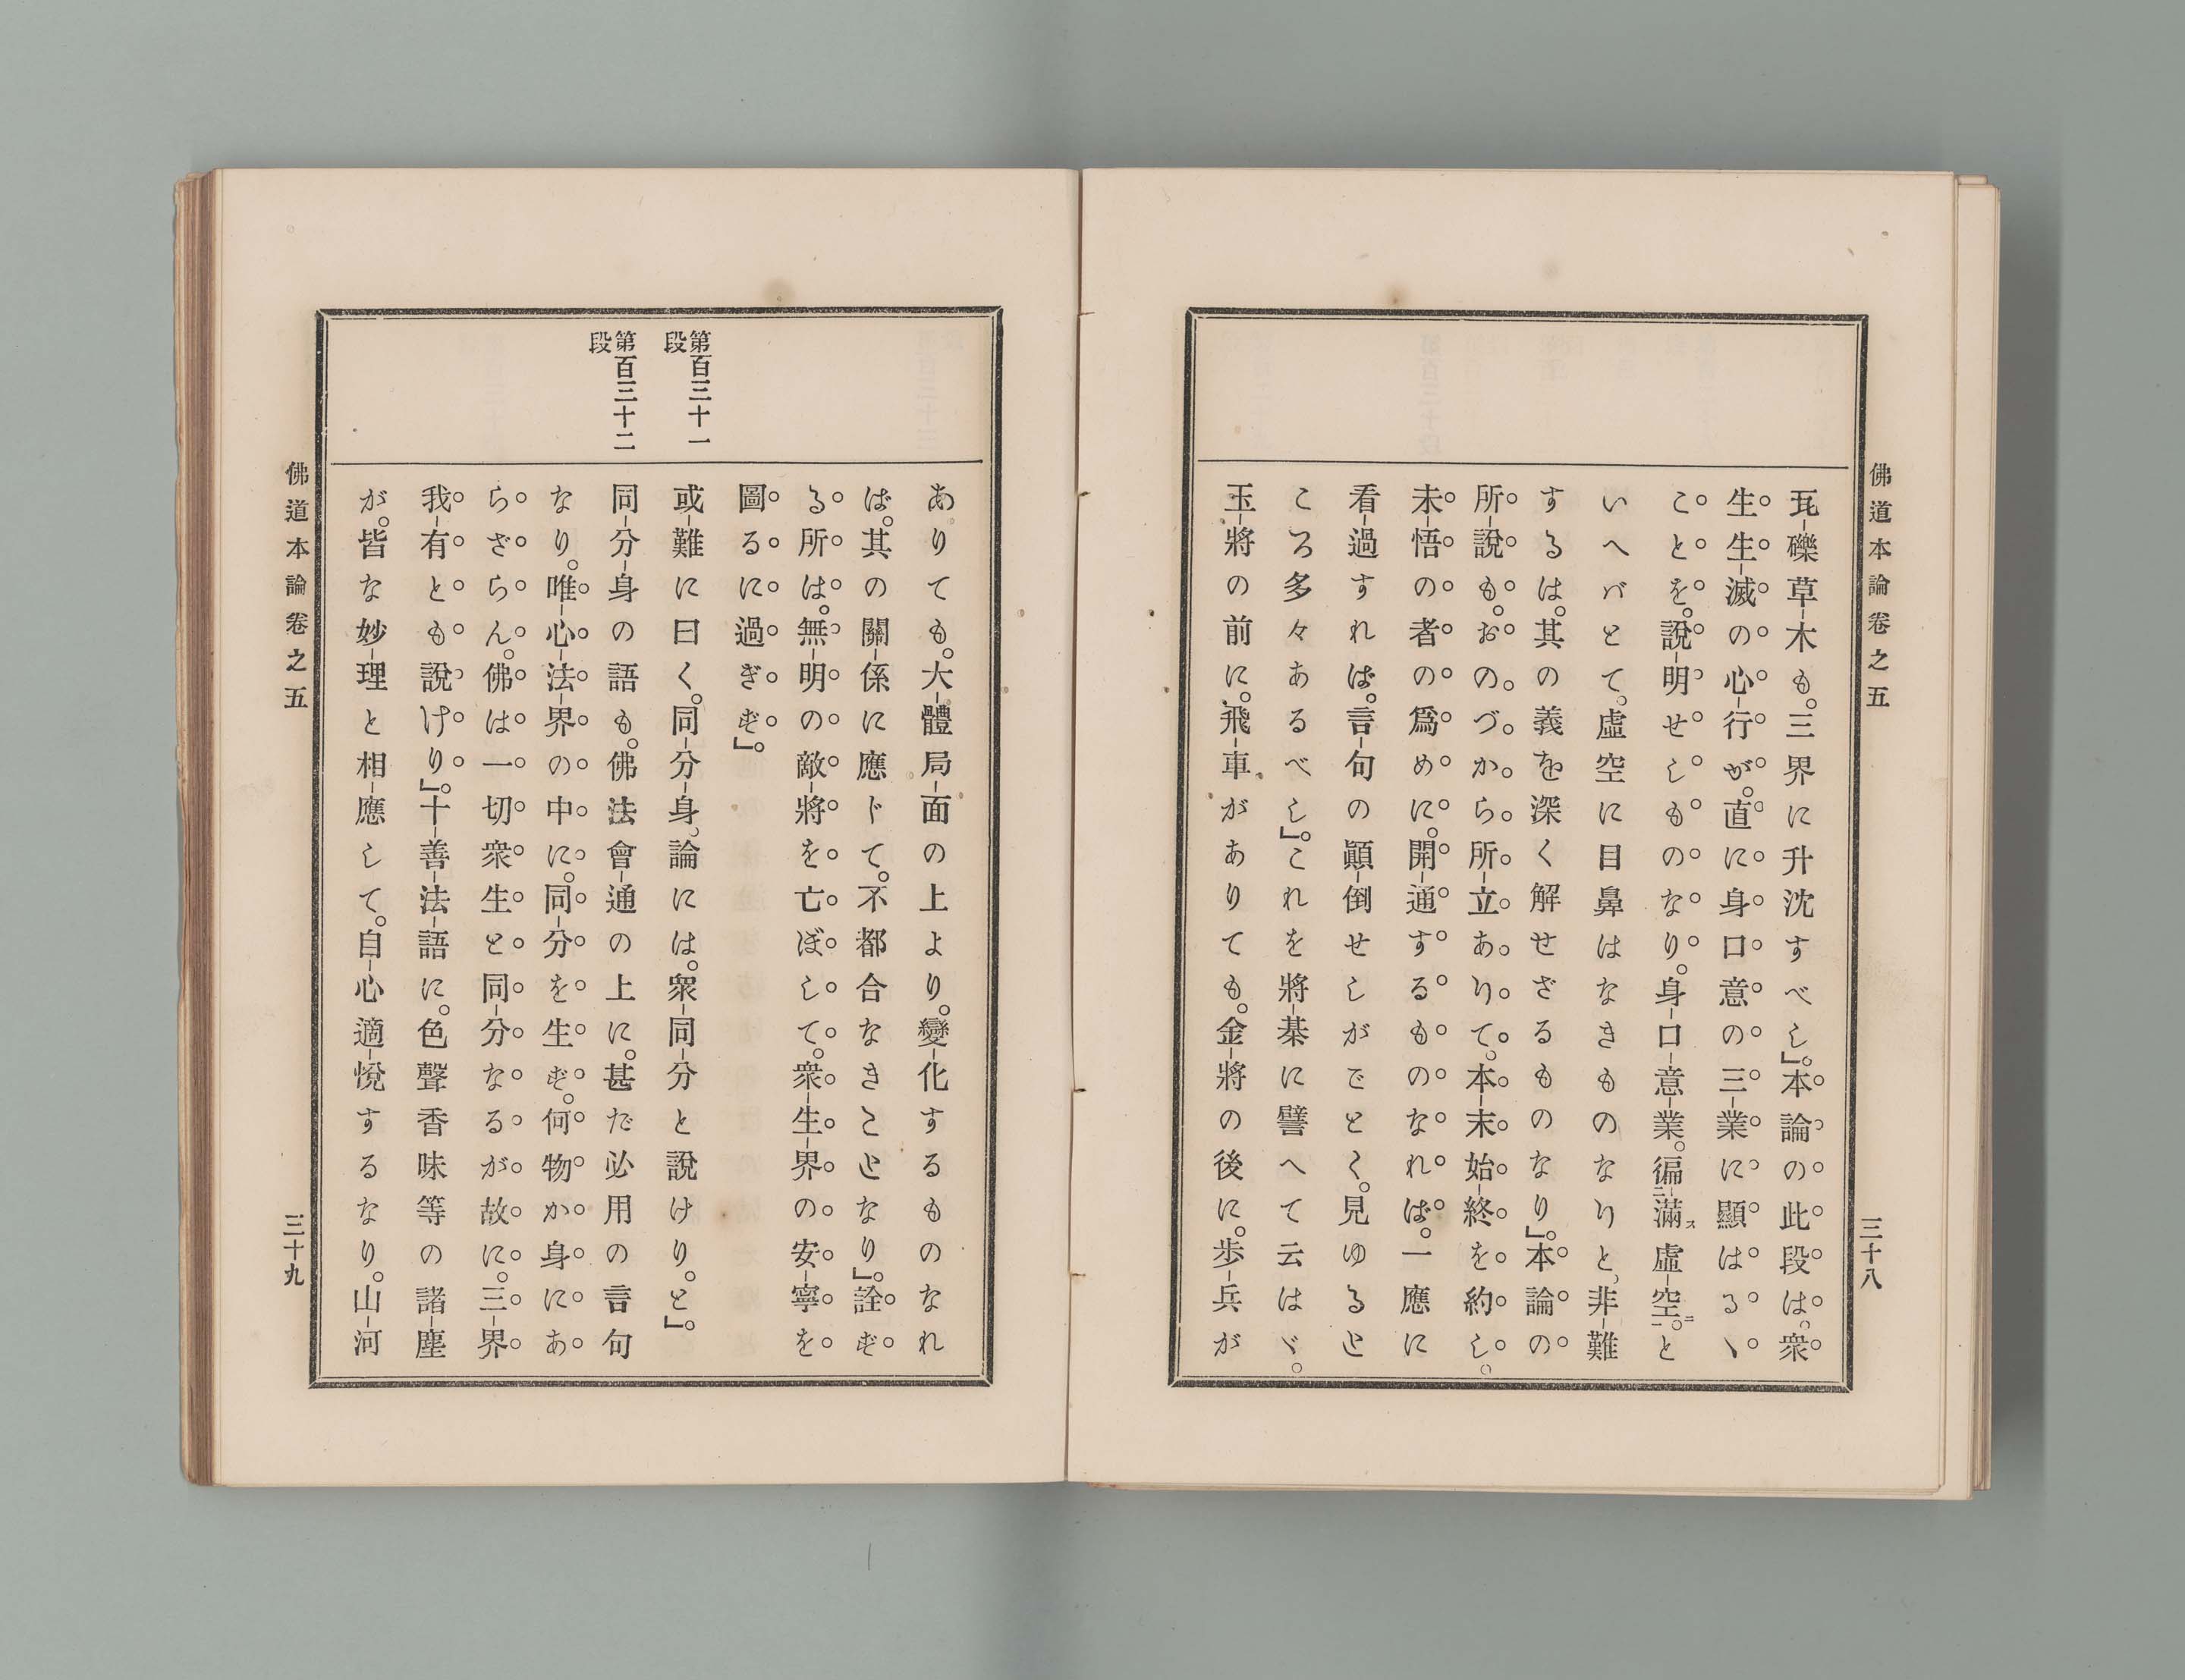 佛道本論卷之五
三十八
瓦礫草木も。三界に升沈すべし』。本論の此段は。衆
生生滅の心行が。直に身口意の三業に顯はるゝ
ことを。說明せしものなり。身口意業。徧二滿ス虛空一ニ。と
いへバとて。虛空に目鼻はなきものなりと。非難
するは。其の義を深く解せざるものなり』。本論の
所說も。おのづから所立ありて。本末始終を約し。
未悟の者の爲めに。開通するものなれば。一應に
看過すれば。言句の顚倒せしがごとく。見ゆると
ころ多々あるべし』。これを將棊に譬へて云はゞ。
玉將の前に。飛車がありても。金將の後に。步兵が
ありても。大體局面の上より。變化するものなれ
ば。其の關係に應じて。不都合なきことなり』。詮ず
る所は。無明の敵將を亡ぼして。衆生界の安寧を
圖るに過ぎず』。
第百三十一
段
或難に曰く。同分身。論には。衆同分と說けり。と』。
第百三十二
段
同分身の語も。佛法會通の上に。甚だ必用の言句
なり。唯心法界の中に。同分を生ず。何物か身にあ
らざらん。佛は一切衆生と同分なるが故に。三界
我有とも說けり』。十善法語に。色聲香味等の諸塵
が。皆な妙理と相應して。自心適悅するなり。山河
佛道本論卷之五
三十九